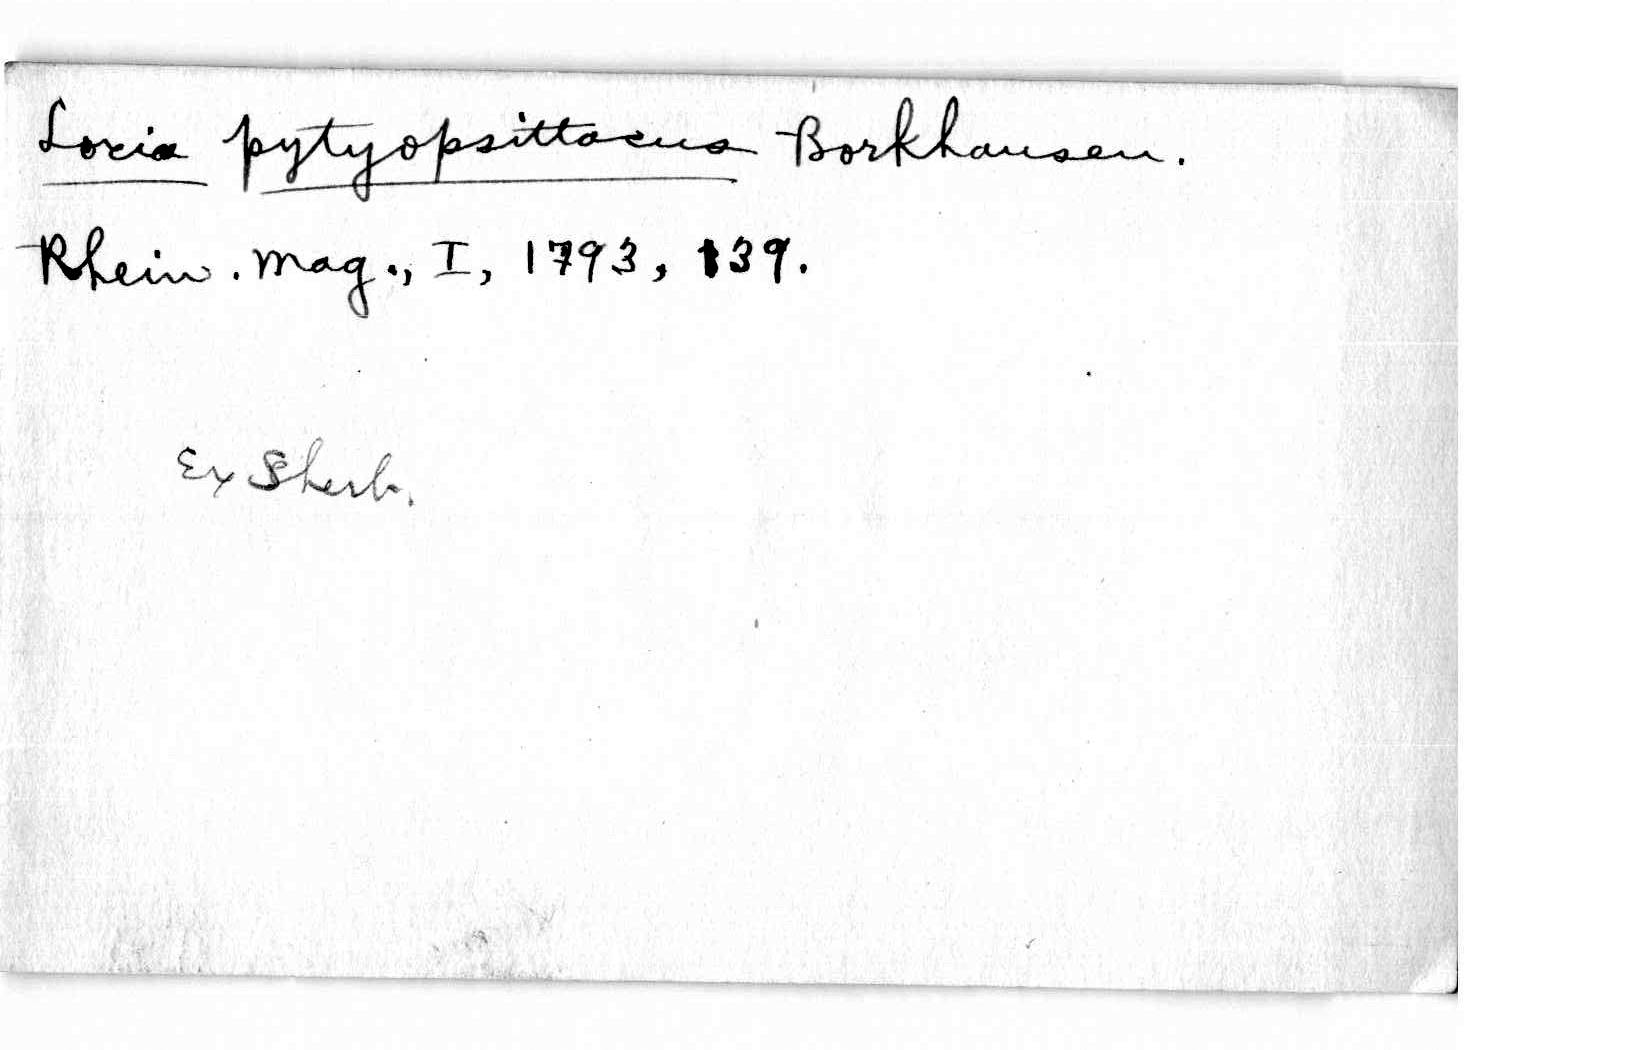 Loxia pytyopsittacus Borkhausen.
Rhein. Mag., I, 1793, 139.
Ex Sherb.